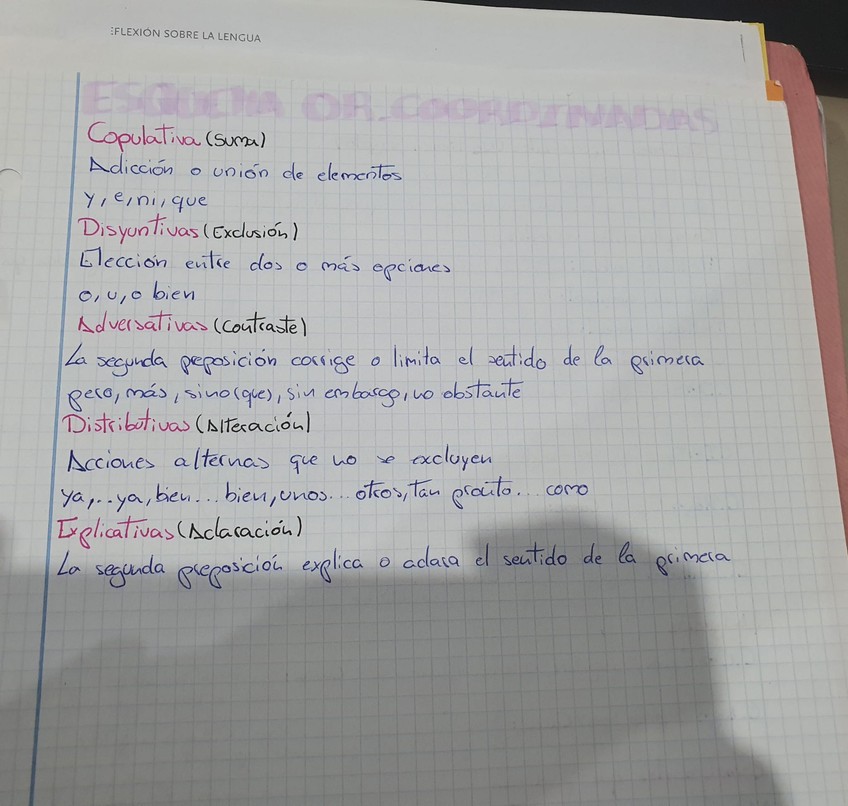 EFLEXIÓN SOBRE LA LENGUA
ESQUEMA OR. COORDINADAS
Copulativa (suma)
Adicción o unión de elementos
y, e, ni, que
Disyuntivas (Exclusión)
Elección entre dos o más opciones
o, u, o bien
Adversativas (contraste)
La segunda preposición corrige o limita el sentido de la primera
pero, más, sino (que), sin embargo, no obstante
Distributivas (Alteración)
Acciones alternas que no se excluyen
ya,...ya, bien... bien, unos... otros, tan pronto... como
Explicativas (Aclaración)
La segunda preposición explica o aclara el sentido de la primera